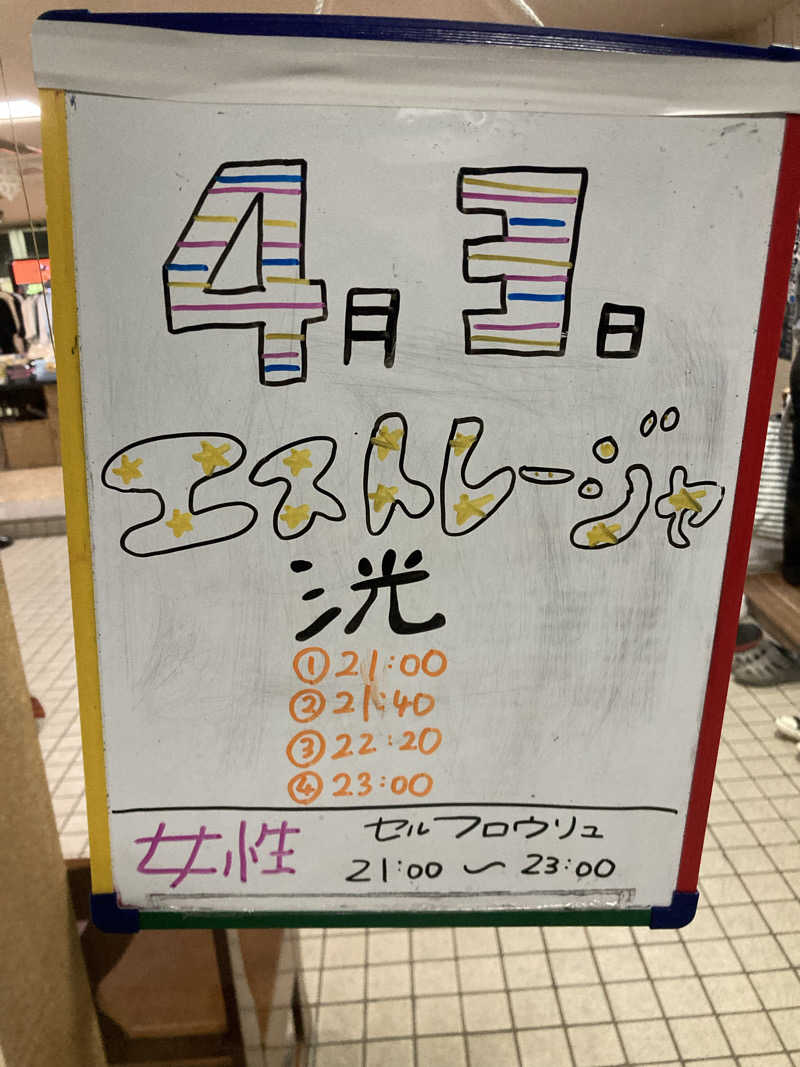 4月3日
エストレージャ
洸
①21:00
②21:40
③22:20
④23:00
女性 セルフロウリュ
21:00〜23:00